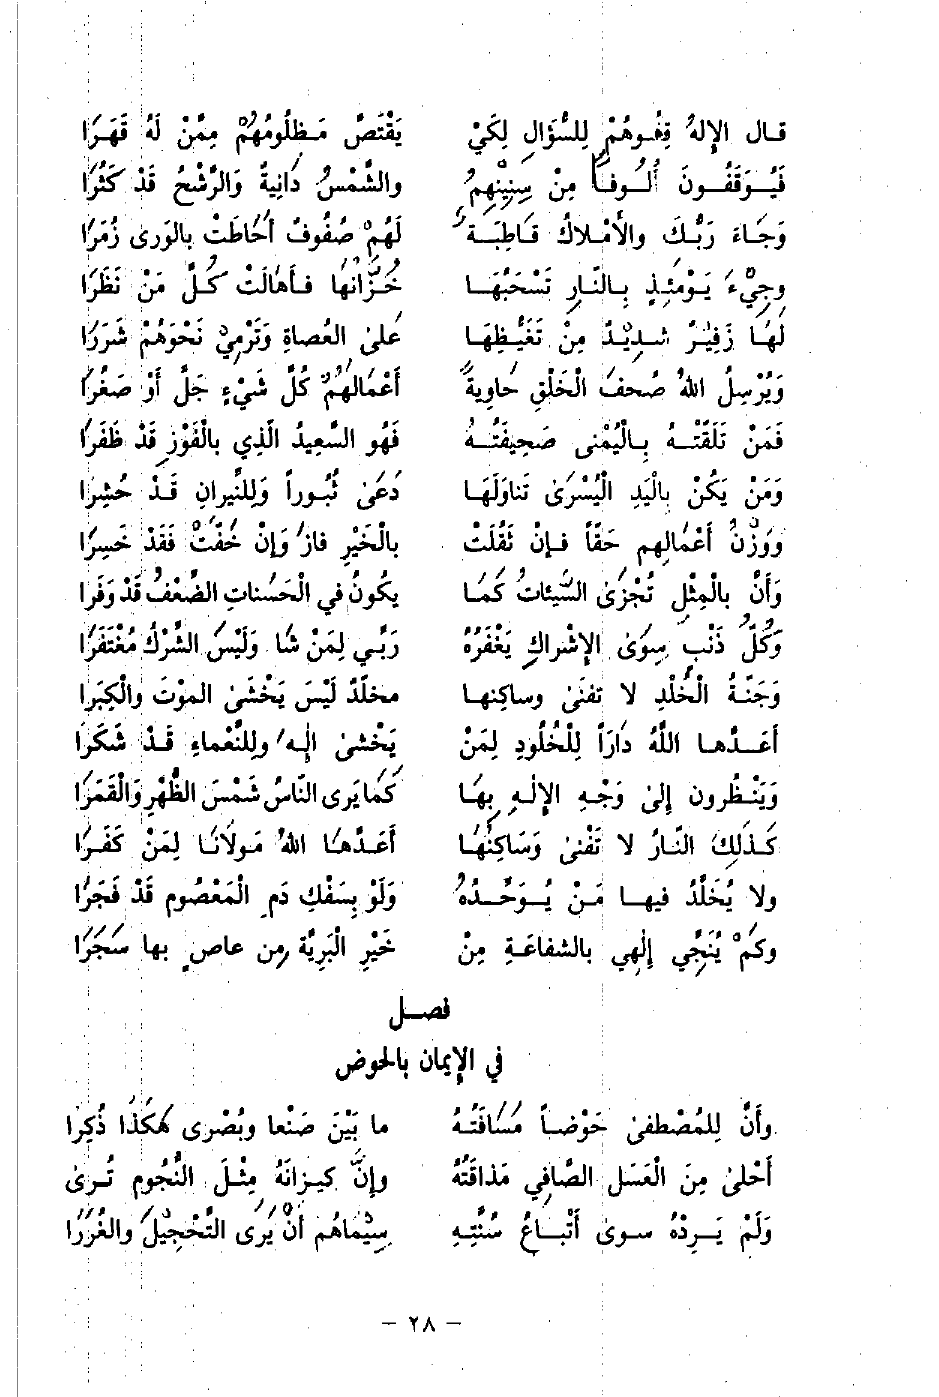 قال الإلهُ قِفُوهُمْ لِلسُّؤَالِ لِكَيْ يَقْتَصَّ مَظلُومُهُمْ مِمَّنْ لَهُ قَهَرَا
فَيُوَقَفُونَ أُلُوفاً مِنْ سِنِيْنِهِمُ والشَّمْسُ دَانِيَةٌ وَالرَّشْحُ قَدْ كَثُرَا
وَجَاءَ رَبُّكَ والأَمْلاكُ قَاطِبَةً لَهُمْ صُفُوفٌ أَحَاطَتْ بالوَرى زُمَرَا
وجِيْءَ يَوْمَئِذٍ بِالنَّارِ تَسْحَبُهَا خُزَّانُها فأَهَالَتْ كُلَّ مَنْ نَظَرَا
لَهَا زَفِيْرٌ شدِيْدٌ مِنْ تَغَيُّظِهَا عَلى العُصاةِ وَتَرْمِيْ نَحْوَهُمْ شَرَرَا
وَيُرْسِلُ اللهُ صُحفَ الْخَلْقِ حَاوِيةً أَعْمَالَهُمْ كُلَّ شَيْءٍ جَلَّ أَوْ صَغُرَا
فَمَنْ تَلَقَّتْهُ بِالْيُمْنى صَحِيفَتُهُ فَهُو السَّعِيدُ الَّذِي بالْفَوْزِ قَدْ ظَفَرَا
وَمَنْ يَكُنْ بِالْيَدِ الْيُسْرَى تَناوُلَهَا دُعَىْ ثُبُوراً وَلِلنِّيرانِ قَدْ حُشِرَا
ووَزْنُ أَعْمَالِهِم حَقّاً فإنْ ثَقُلَتْ بالْخَيْرِ فازَ وَإنْ خَفَّتْ فَقَدْ خَسِرَا
وَأنَّ بالْمِثْلِ تُجْزَى السَّيئاتُ كَمَا يكُونُ في الْحَسَناتِ الضِّعْفُ قَدْ وَفَرا
وَكُلُّ ذَنْبٍ سِوَى الإشْراكِ يَغْفَرُهُ رَبِّي لِمَنْ شَا وَلَيْسَ الشَّرْكُ مُغْتَفَرَا
وَجَنَّةُ الْخُلْدِ لا تفنَى وساكِنها مخلَّدٌ لَيْسَ يَخْشَى الموْتَ والْكِبَرا
أَعَدَّها اللَّهُ دَارَاً لِلْخُلُودِ لِمَنْ يَخْشى الإله وللنَّعْماءِ قَدْ شَكَرَا
وَيَنْظُرون إلىْ وَجْهِ الإلٰهِ بِهَا كَمَا يَرى النَّاسُ شَمْسَ الظُّهْرِ وَالْقَمَرَا
كَذلِكَ النَّارُ لا تَفْنىْ وَسَاكِنُهَا أَعَدَّهَا اللهُ مَولَانَا لِمَنْ كَفَرَا
ولا يُخَلَّدُ فيها مَنْ يُوَحِّدُهُ وَلَوْ بِسَفْكِ دَمِ الْمَعْصُومِ قَدْ فَجَرَا
وكَمْ يُنَجِّي إلٰهِي بالشفاعَةِ مِنْ خَيْرِ الْبَرِيَّةِ مِن عاصٍ بها سَجَرَا
فصل
في الإيمان بالحوض
وأَنَّ لِلمُصْطفىْ حَوْضاً مَسَافَتُهُ ما بَيْنَ صَنْعا وبُصْرى هكَذَا ذُكِرا
أَحْلىْ مِنَ الْعَسَلِ الصَّافِي مَذاقَتُهُ وإنَّ كيزانَهُ مِثْلَ النُّجُومِ تُرىْ
وَلَمْ يَرِدْهُ سوىْ أَتْباعُ سُنَّتِهِ سِيْمَاهُم أَنْ يَرَى التَّحْجِيْلَ والغُرَرَا
- ٢٨ -